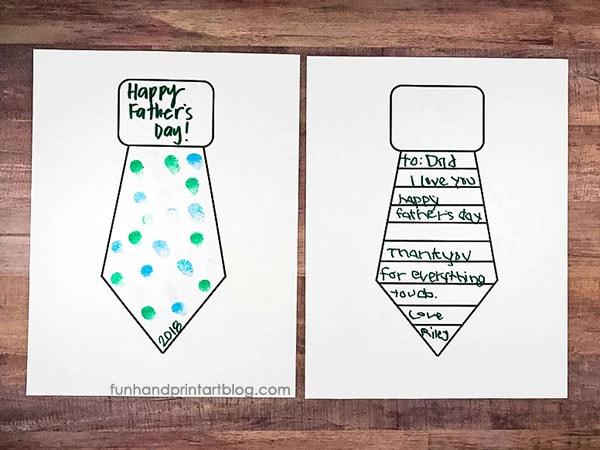 Happy
Father's
Day!
2018
to: Dad
I love you
happy
father's day
Thank you
for everything
you do.
Love
Riley
funhandprintartblog.com